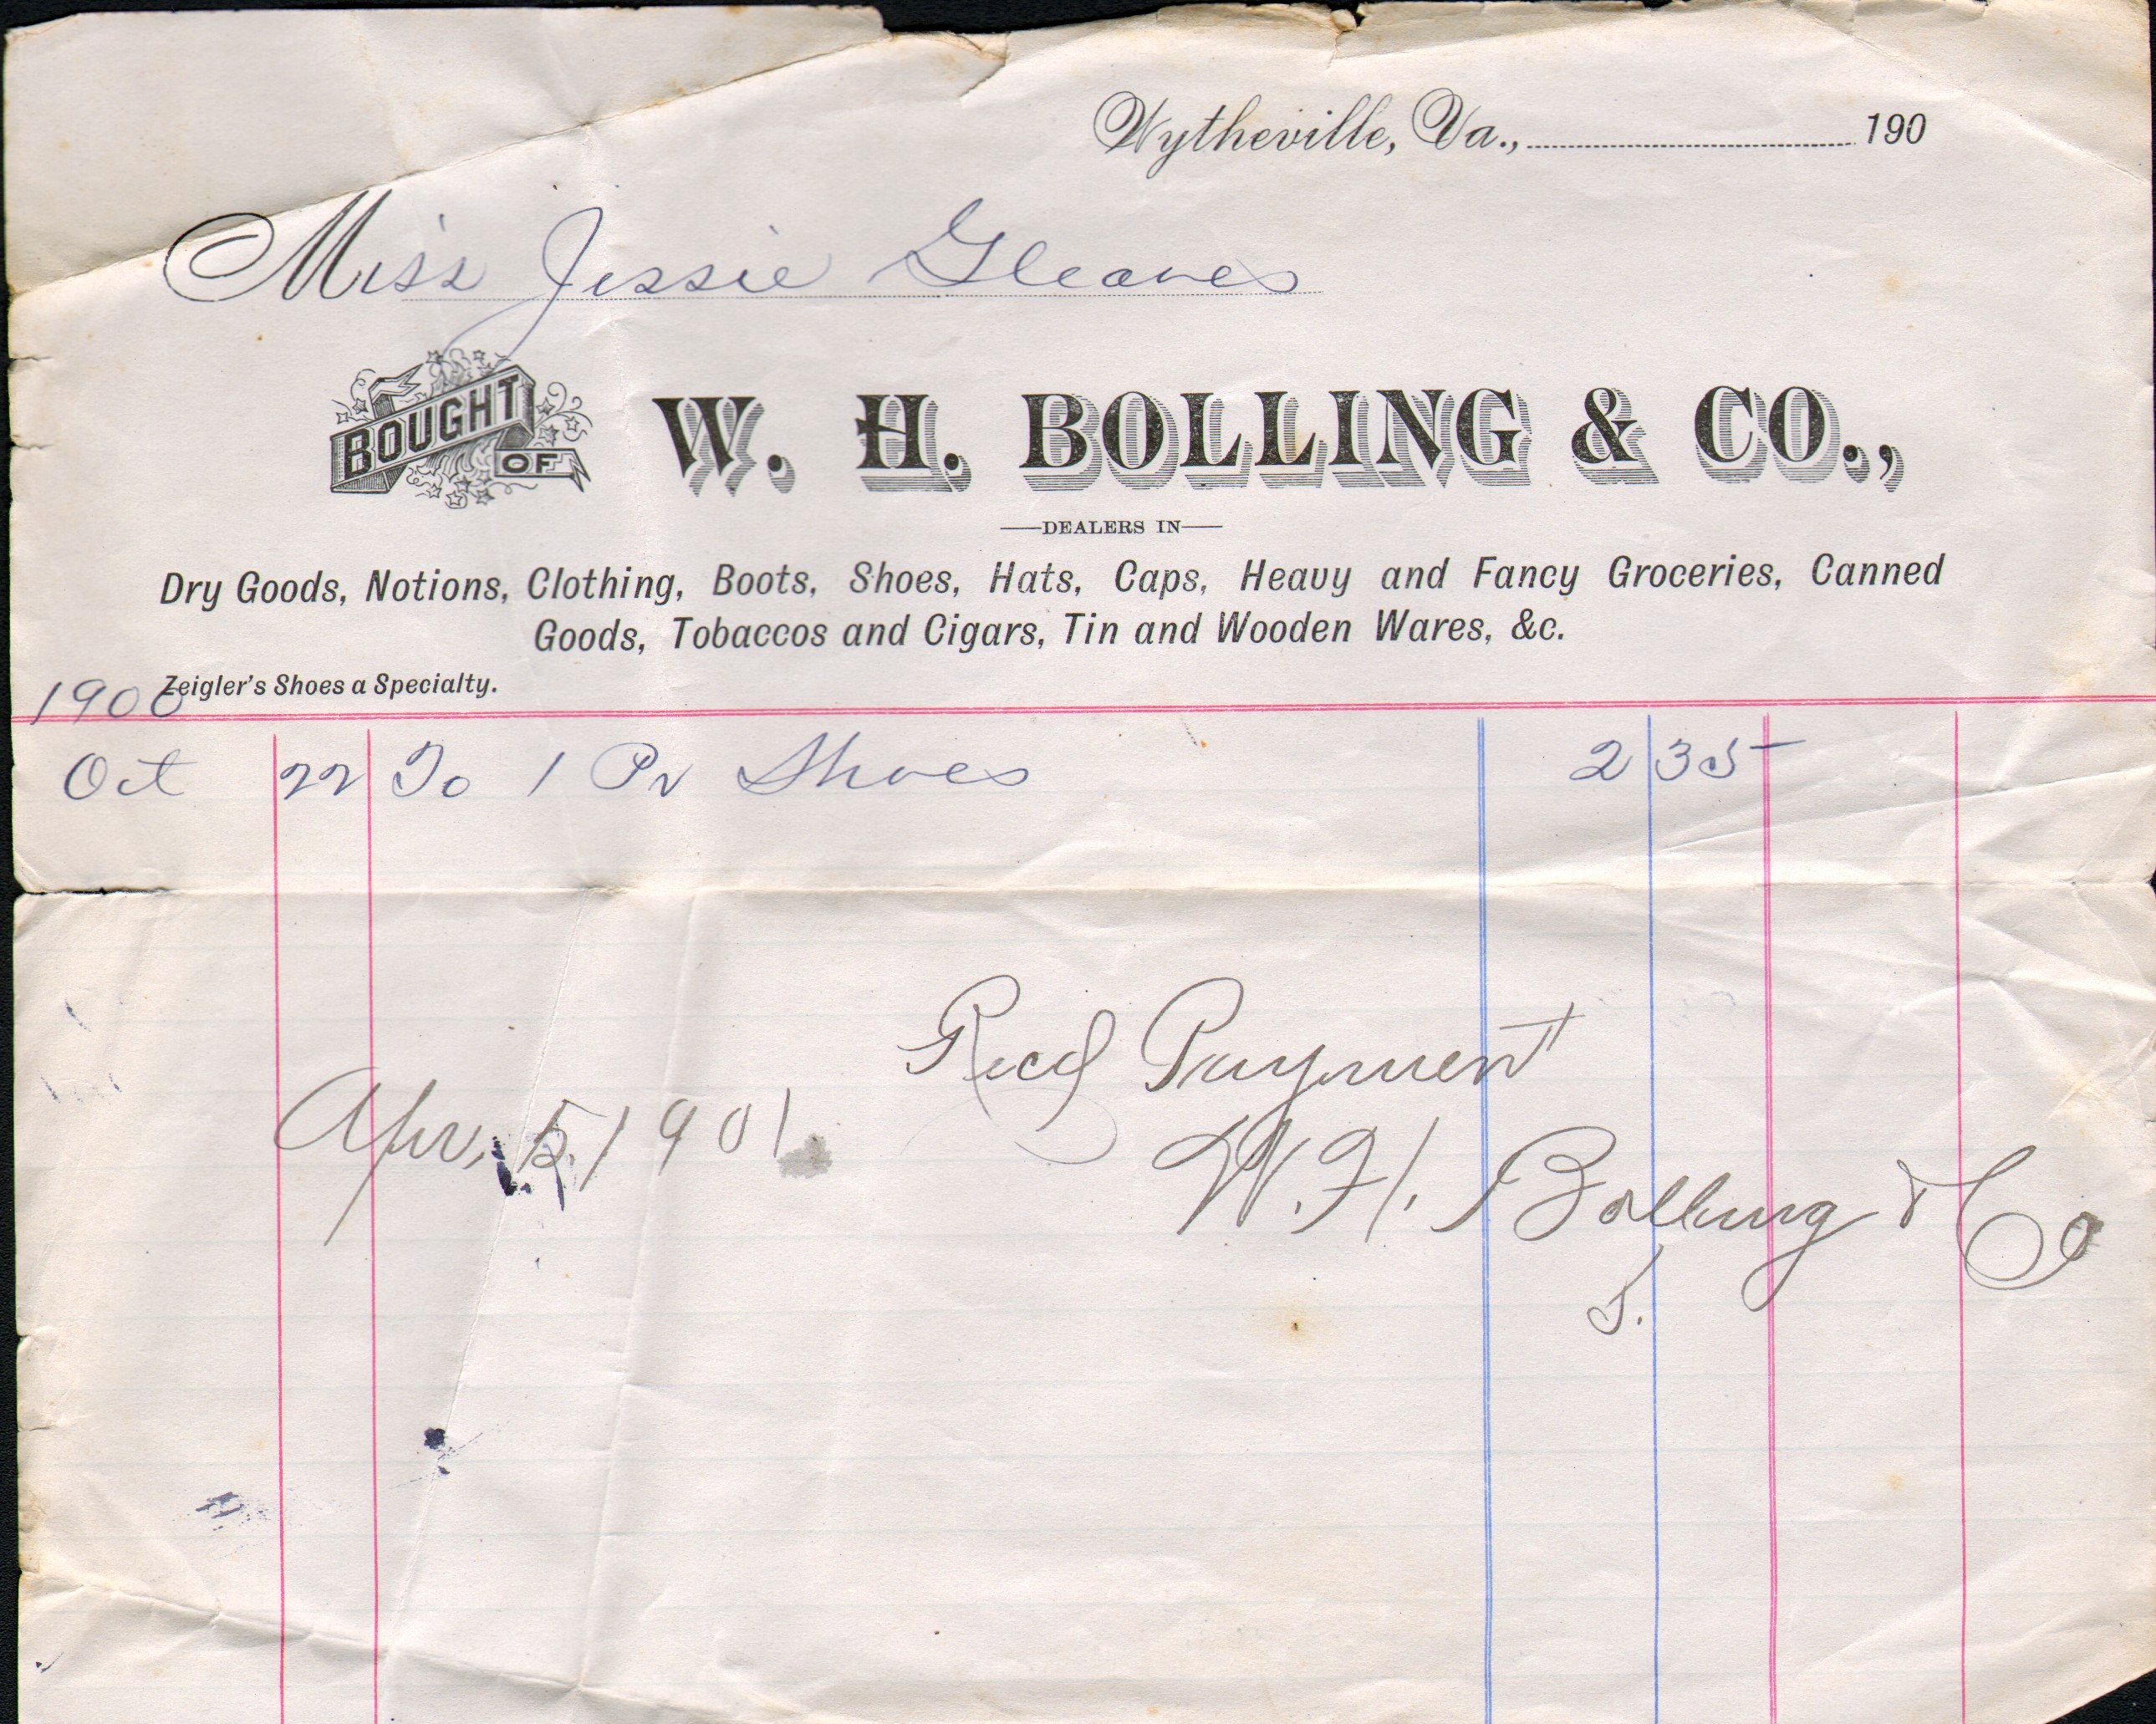 Wytheville, Va., 190
Miss Jessie Gleaves
BOUGHT OF W. H. BOLLING & CO.,
DEALERS IN
Dry Goods, Notions, Clothing, Boots, Shoes, Hats, Caps, Heavy and Fancy Groceries, Canned
Goods, Tobaccos and Cigars, Tin and Wooden Wares, &c.
Zeigler's Shoes a Specialty.
1900
Oct 22 To 1 Pr Shoes 2 35
Recd Payment
Apr, 5, 1901
W. H. Bolling & Co
S.